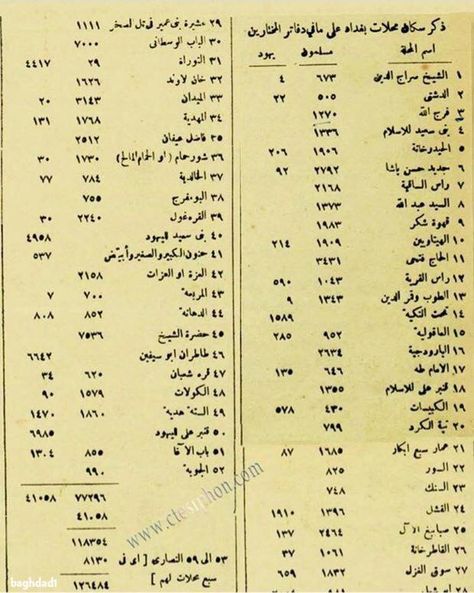 ذكر سكان محلات بغداد على ما في دفاتر المختارين
اسم المحلة مسلمون يهود
١ الشيخ سراج الدين ٦٧٣ ٤
٢ الدشتى ٥٠٥ ٢٢
٣ فرج الله ١٢٧٠
٤ بنى سعيد للاسلام ١٣٣٦
٥ الحيدرخانة ١٩٠٦ ٢٠٦
٦ جديد حسن باشا ٢٧٩٢ ٩٢
٧ راس الساقية ٢١٦٨
٨ السيد عبد الله ١٣٧٣
٩ قهوة شكر ١٩٨٣
١٠ الهيتاويين ١٩٠٩ ٢١٤
١١ الحاج فتحى ٣٤٣١
١٢ راس القرية ١٠٤٣ ٥٩٠
١٣ الطوب وقر الدين ١٣٤٣ ٩
١٤ تحت التكية ١٥٨٩
١٥ العاقولية ٩٥٢ ٢٨٥
١٦ البارودجية ٢٦٣٤
١٧ الامام طه ٦٤٦ ١٣٥
١٨ قنبر على للاسلام ١٣٥٥
١٩ الكبيسات ٤٣٠ ٥٧٨
٢٠ تبة الكرد ٧٩٩
٢١ عمار سبع ابكار ١٦٨٥ ٨٧
٢٢ السور ٨٢٥
٢٣ السنك ٧٤٨
٢٤ الفشل ١٣٩٦ ١٩١٠
٢٥ صبابيغ الآل ٢٤٦٤ ١٣٧
٢٦ القاطرخانة ١٠٦١ ٣٧
٢٧ سوق الغزل ١٨٣٢ ٦٥٩
٢٩ عشيرة بنى عمير فى تل لصخر ١١١١
٣٠ الباب الوسطانى ٧٠٠٠
٣١ التوراة ٢٩ ٤٤١٧
٣٢ خان لاوند ١٦٢٦
٣٣ الميدان ٣١٤٣ ٢٠
٣٤ المهدية ١٧٦٨ ١٣١
٣٥ فاضل عيفان ٢٥١٢
٣٦ شورحمام (او الحمام المالح) ١٧٣٠ ٣٠
٣٧ الخالدية ٧٨٤ ٧٧
٣٨ البومفرج ٧٥٥
٣٩ القره غول ٢٢٤٠ ٣٠
٤٠ بنى سعيد لليهود ٤٩٥٨
٤١ حنون الكبير والصغير وأبيض ٥٣٧
٤٢ العزة او العزات ٢١٥٨
٤٣ المربعة ٧٠٠ ٧
٤٤ الدهانة ٨٥٢ ٨٠٨
٤٥ حضرة الشيخ ٧٥٣٦
٤٦ طاطران ابو سيفين ٦٦٤٢
٤٧ قره شعبان ٦٢٠ ٣٤
٤٨ الكولات ١٥٧٩ ٩٠
٤٩ الستة هدية ١٨٦٠ ١٤٧٠
٥٠ قنبر على لليهود ٦٩٨٥
٥١ باب الآغا ٨٥٥ ١٣٠٤
٥٢ الجوبة ٩٩٠
٧٧٢٩٦ ٤١٠٥٨
٤١٠٥٨
١١٨٣٥٤
٥٣ الى ٥٩ النصارى [ اى فى ٨١٣٠
سبع محلات لهم ] ١٢٦٤٨٤
www.ctesiphon.com
baghdad1